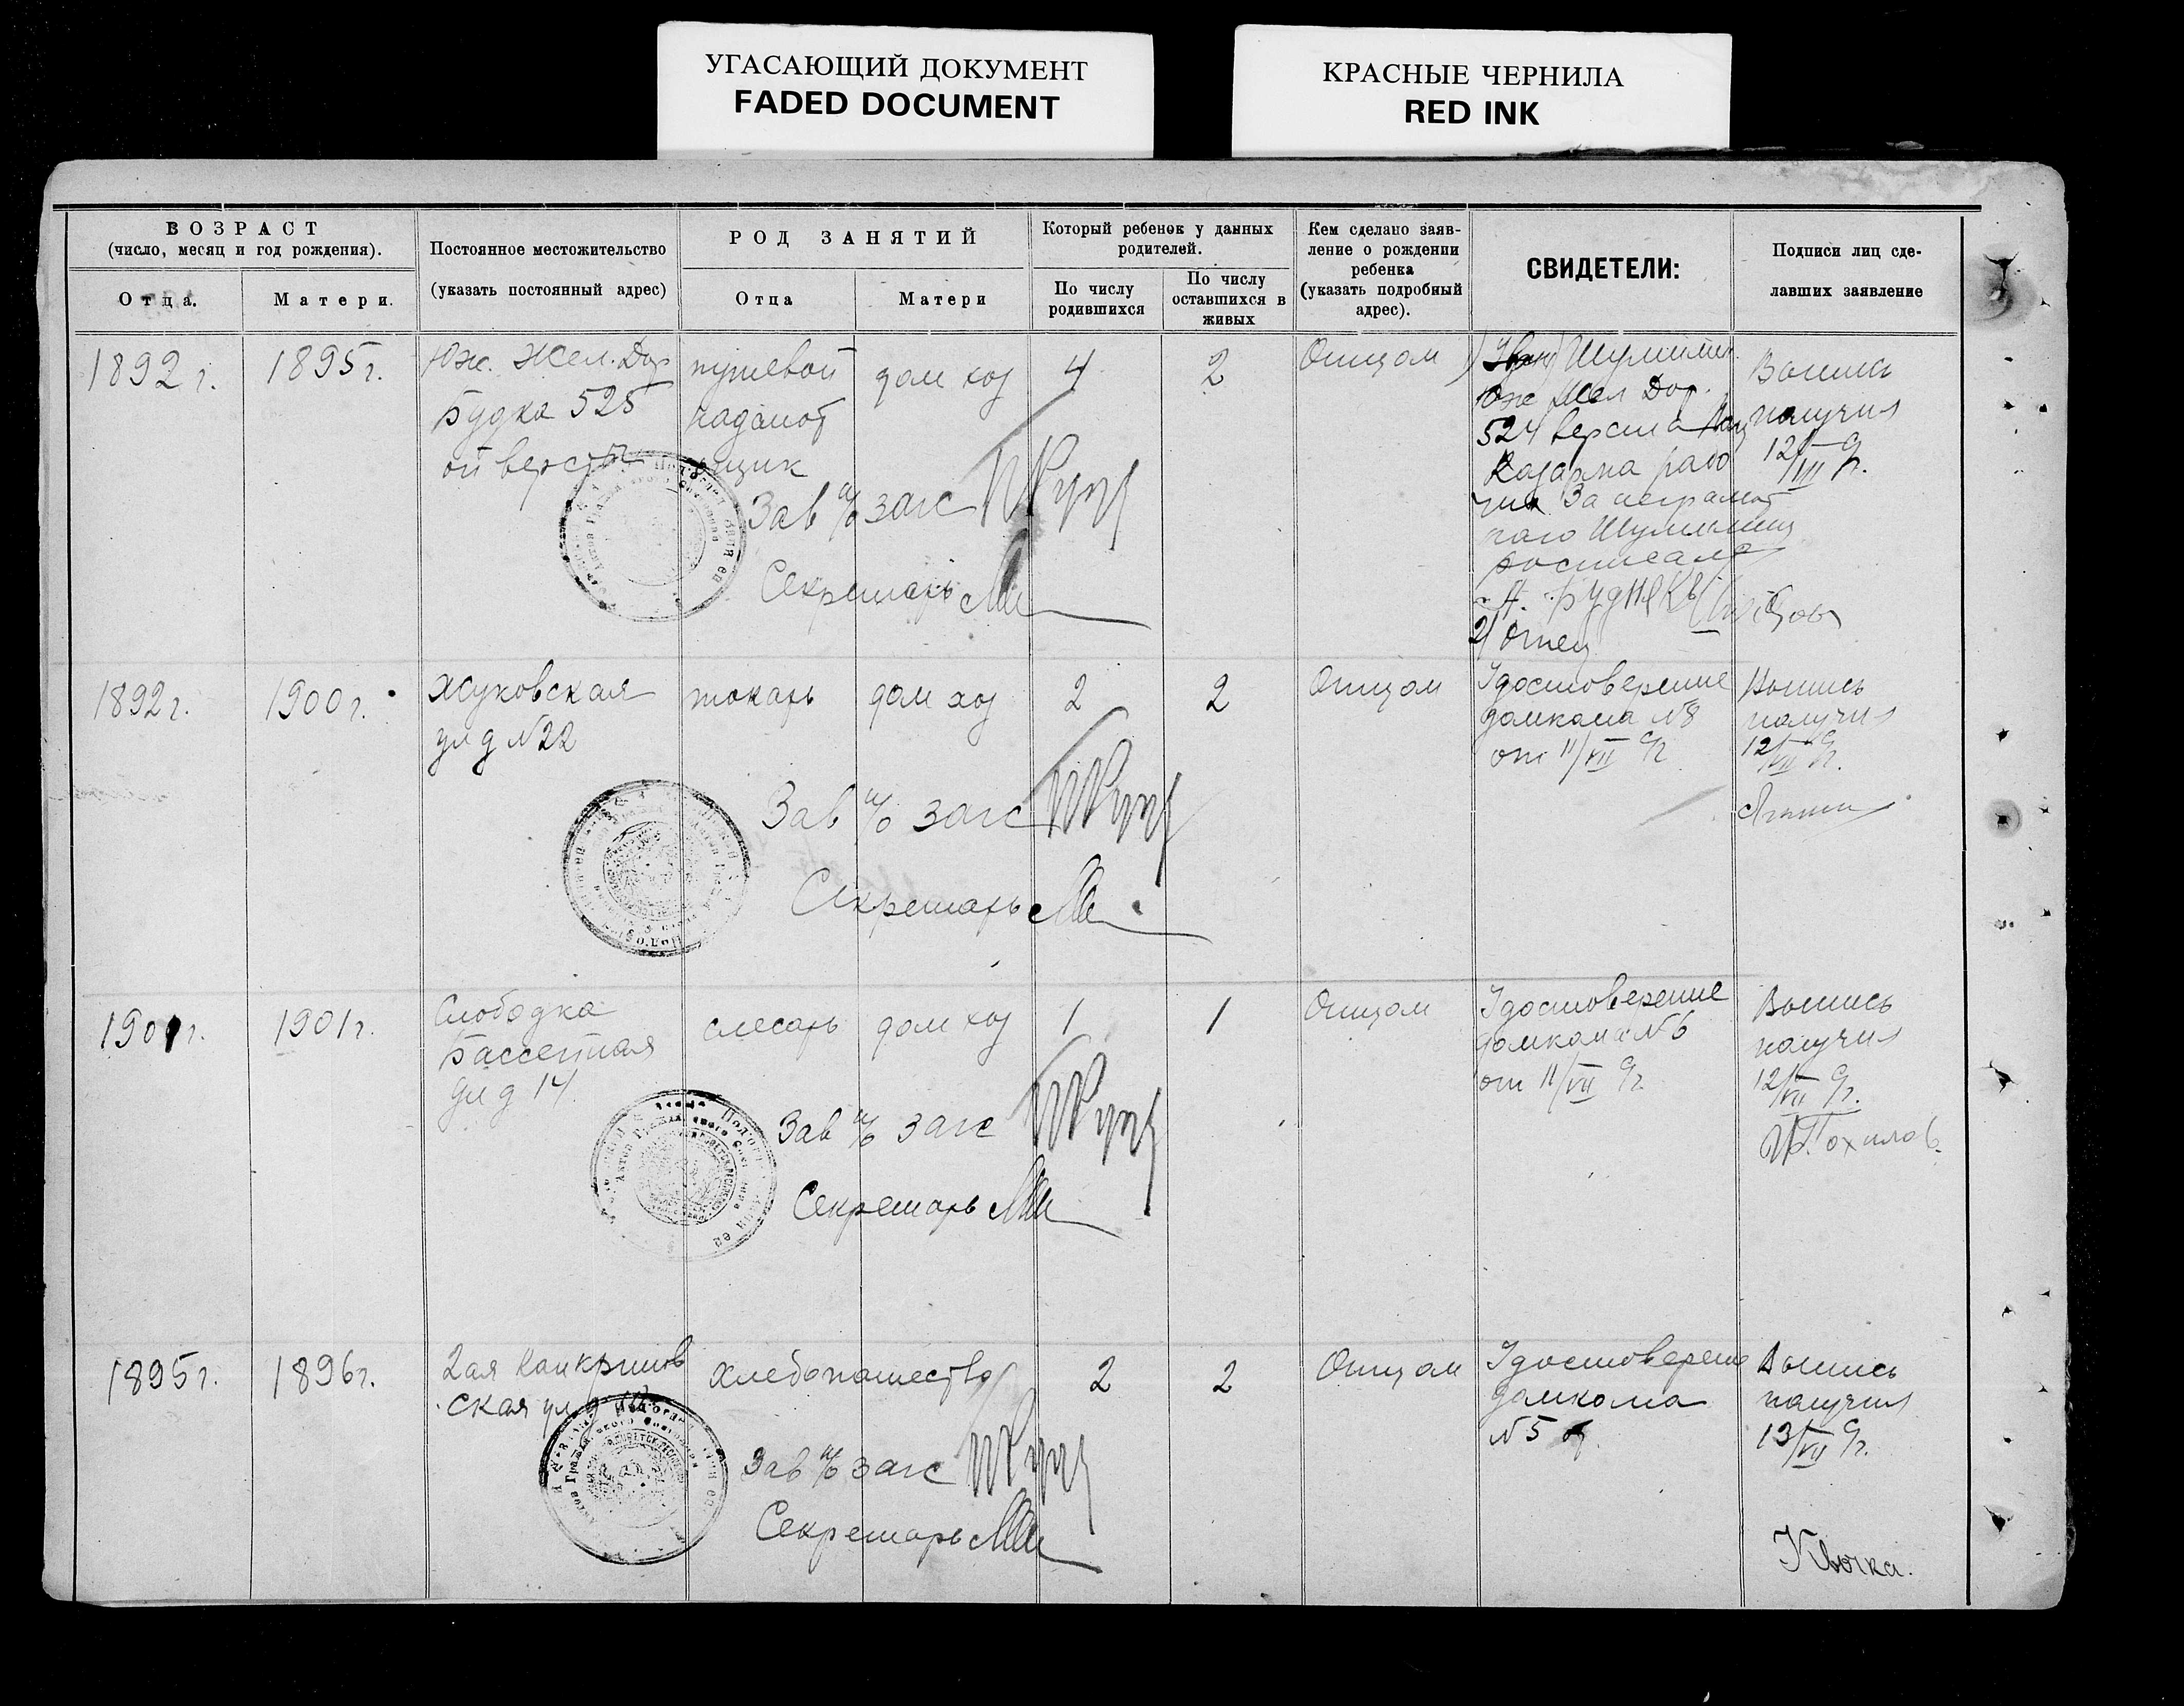 УГАСАЮЩИЙ ДОКУМЕНТ
FADED DOCUMENT
КРАСНЫЕ ЧЕРНИЛА
RED INK
ВОЗРАСТ
(число, месяц и год рождения).
Отца.
Матери.
Постоянное местожительство
(указать постоянный адрес)
РОД ЗАНЯТИЙ
Отца
Матери
Который ребенок у данных
родителей.
По числу
родившихся
По числу
оставшихся в
живых
Кем сделано заяв-
ление о рождении
ребенка
(указать подробный
адрес).
СВИДЕТЕЛИ:
Подписи лиц сде-
лавших заявление
1892 г.
1895 г.
Юж. Жел. Дор
Будка 525
ой версты
путевой
дом хоз
4
2
Отцом
Юж Жел Дор.
524 верста
Казарма рабо
чих За неграмот
ного
2) Отец
Выпись
получил
12/VII
Зав п/о загс
Секретарь
1892 г.
1900 г.
Жуковская
ул д N22
токарь
дом хоз
2
2
Отцом
Удостоверение
домкома N8
от 11/VII
Выпись
получил
12/VII
Зав п/о загс
Секретарь
1901 г.
1901 г.
Слободка
Бассейная
ул д 14
слесарь
дом хоз
1
1
Отцом
Удостоверение
домкома N6
от 11/VII
Выпись
получил
12/VII
Зав п/о загс
Секретарь
1895 г.
1896 г.
2ая
ская ул д
хлебопашество
2
2
Отцом
Удостоверение
домкома
N5
Выпись
получил
13/VII
Квочка.
Зав п/о загс
Секретарь